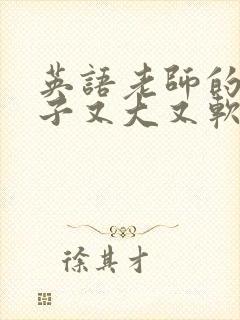 英語老師的
子又大又軟
徐其才